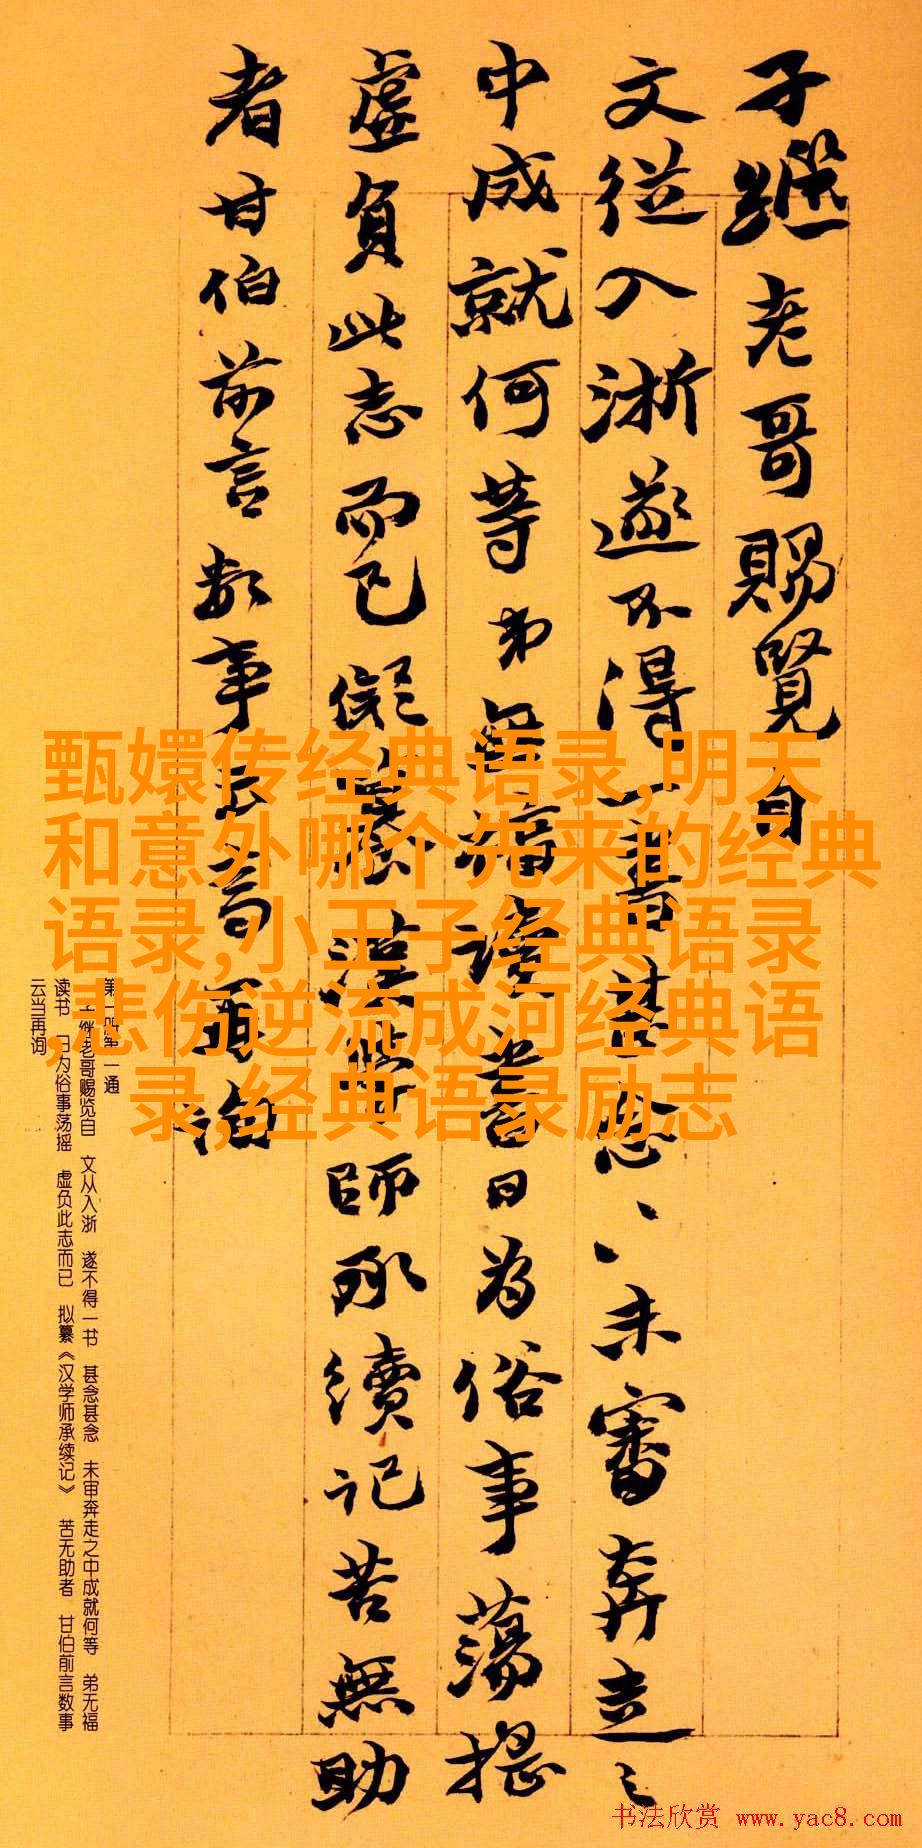 子继老哥赐览自
文從入浙遂不得一書甚念〻未審奔走之
中成就何等弟無福讀書日为俗事蕩摇
虚負此志而已儗纂漢學師承續记苦無助
者甘伯前言數事云當再詢
甄嬛传经典语录,明天
和意外哪个先来的经典
语录,小王子经典语录
,悲伤逆流成河经典语
录,经典语录励志
第一一通
子继老哥赐览自 文从入浙 遂不得一书 甚念甚念 未审奔走之中成就何等 弟无福
读书 日为俗事荡摇 虚负此志而已 拟纂《汉学师承续记》 苦无助者 甘伯前言数事
云当再询
书法欣赏 www.yac8.com